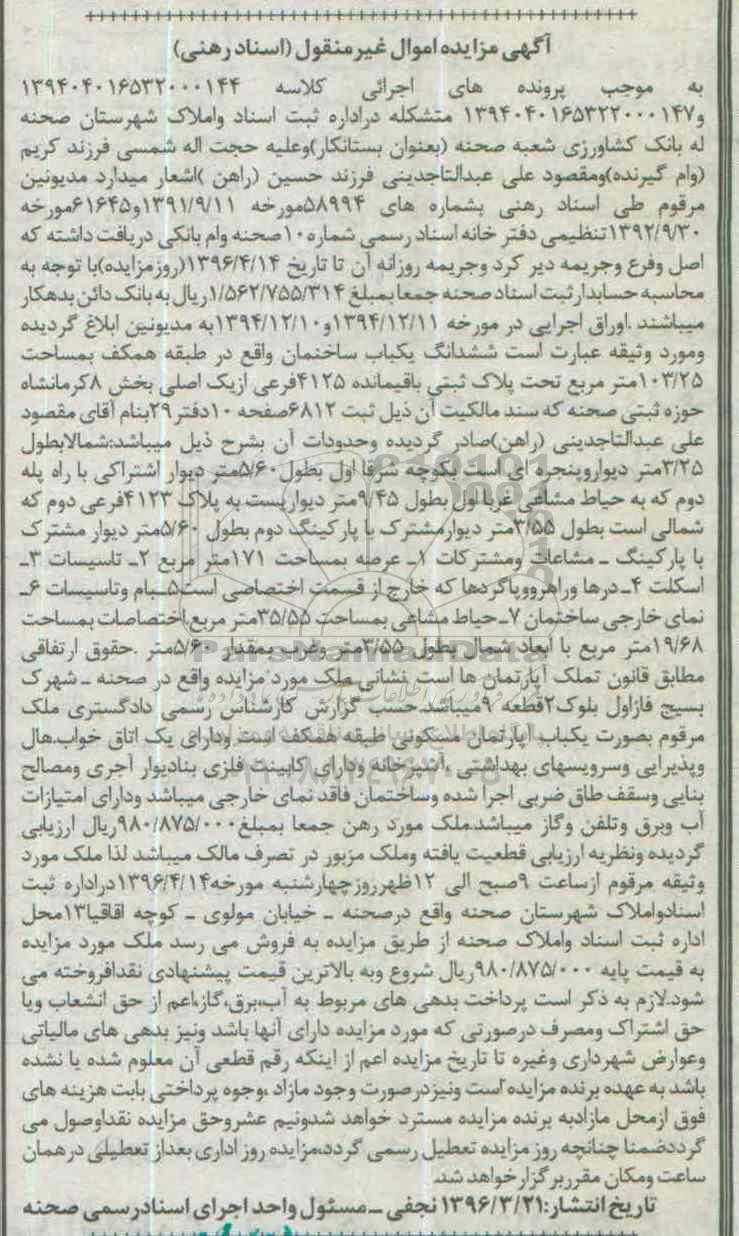 آگهی مزایده اموال غیر منقول (اسناد رهنی)
به موجب پرونده های اجرائی کلاسه ۱۳۹۴۰۴۰۱۶۵۳۲۲۰۰۰۱۴۴
و۱۳۹۴۰۴۰۱۶۵۳۲۲۰۰۰۱۴۷ متشکله دراداره ثبت اسناد واملاک شهرستان صحنه
له بانک کشاورزی شعبه صحنه (بعنوان بستانکار)وعلیه حجت اله شمسی فرزند کریم
(وام گیرنده)ومقصود علی عبدالتاجدینی فرزند حسین (راهن )اشعار میدارد مدیونین
مرقوم طی اسناد رهنی بشماره های ۵۸۹۹۴مورخه ۱۳۹۱/۹/۱۱و۶۱۶۴۵مورخه
۱۳۹۲/۹/۳۰تنظیمی دفتر خانه اسناد رسمی شماره۱۰صحنه وام بانکی دریافت داشته که
اصل وفرع وجریمه دیر کرد وجریمه روزانه آن تا تاریخ ۱۳۹۶/۴/۱۴(روزمزایده)با توجه به
محاسبه حسابدار ثبت اسناد صحنه جمعا بمبلغ ۱/۵۶۲/۷۵۵/۳۱۴ریال به بانک دائن بدهکار
میباشند .اوراق اجرایی در مورخه ۱۳۹۴/۱۲/۱۱و۱۳۹۴/۱۲/۱۰به مدیونین ابلاغ گردیده
ومورد وثیقه عبارت است ششدانگ یکباب ساختمان واقع در طبقه همکف بمساحت
۱۰۳/۲۵متر مربع تحت پلاک ثبتی باقیمانده ۴۱۲۵فرعی ازیک اصلی بخش ۸کرمانشاه
حوزه ثبتی صحنه که سند مالکیت آن ذیل ثبت ۶۸۱۲صفحه ۱۰دفتر ۲۹بنام آقای مقصود
علی عبدالتاجدینی (راهن)صادر گردیده وحدودات آن بشرح ذیل میباشد:شمالابطول
۳/۲۵متر دیواروپنجره ای است بکوچه شرقا اول بطول ۵/۶۰متر دیوار اشتراکی با راه پله
دوم که به حیاط مشاعی غربا اول بطول ۹/۴۵متر دیواریست به پلاک ۴۱۲۳فرعی دوم که
شمالی است بطول ۳/۵۵متر دیوارمشترک با پارکینگ دوم بطول ۵/۶۰متر دیوار مشترک
با پارکینگ ـ مشاعات ومشترکات ۱ـ عرصه بمساحت ۱۷۱متر مربع ۲ـ تاسیسات ۳ـ
اسکلت ۴ـ درها وراهروویاگردها که خارج از قسمت اختصاصی است۵ـبام وتاسیسات ۶ـ
نمای خارجی ساختمان ۷ـ حیاط مشاعی بمساحت ۳۵/۵۵متر مربع.اختصاصات بمساحت
۱۹/۶۸متر مربع با ابعاد شمال بطول ۳/۵۵متر وغرب بمقدار ۵/۶۰متر .حقوق ارتفاقی
مطابق قانون تملک آپارتمان ها است .نشانی ملک مورد مزایده واقع در صحنه ـ شهرک
بسیج فازاول بلوک۲قطعه ۹میباشد.حسب گزارش کارشناس رسمی دادگستری ملک
مرقوم بصورت یکباب آپارتمان مسکونی طبقه همکف است ودارای یک اتاق خواب.هال
وپذیرایی وسرویسهای بهداشتی ،آشپزخانه ودارای کابینت فلزی بنادیوار آجری ومصالح
بنایی وسقف طاق ضربی اجرا شده وساختمان فاقد نمای خارجی میباشد ودارای امتیازات
آب وبرق وتلفن وگاز میباشد.ملک مورد رهن جمعا بمبلغ۹۸۰/۸۷۵/۰۰۰ریال ارزیابی
گردیده ونظریه ارزیابی قطعیت یافته وملک مزبور در تصرف مالک میباشد لذا ملک مورد
وثیقه مرقوم ازساعت ۹صبح الی ۱۲ظهرروزچهارشنبه مورخه۱۳۹۶/۴/۱۴دراداره ثبت
اسنادواملاک شهرستان صحنه واقع درصحنه ـ خیابان مولوی ـ کوچه اقاقیا۱۳محل
اداره ثبت اسناد واملاک صحنه از طریق مزایده به فروش می رسد ملک مورد مزایده
به قیمت پایه ۹۸۰/۸۷۵/۰۰۰ریال شروع وبه بالاترین قیمت پیشنهادی نقدافروخته می
شود.لازم به ذکر است پرداخت بدهی های مربوط به آب،برق،گاز،اعم از حق انشعاب ویا
حق اشتراک ومصرف درصورتی که مورد مزایده دارای آنها باشد ونیز بدهی های مالیاتی
وعوارض شهرداری وغیره تا تاریخ مزایده اعم از اینکه رقم قطعی آن معلوم شده یا نشده
باشد به عهده برنده مزایده است ونیزدرصورت وجود مازاد ،وجوه پرداختی بابت هزینه های
فوق ازمحل مازادبه برنده مزایده مسترد خواهد شدونیم عشروحق مزایده نقداوصول می
گرددضمنا چنانچه روز مزایده تعطیل رسمی گردد،مزایده روز اداری بعداز تعطیلی در همان
ساعت ومکان مقرربرگزارخواهد شد.
تاریخ انتشار:۱۳۹۶/۳/۲۱ نجفی ـ مسئول واحد اجرای اسنادرسمی صحنه
ParsNamadData